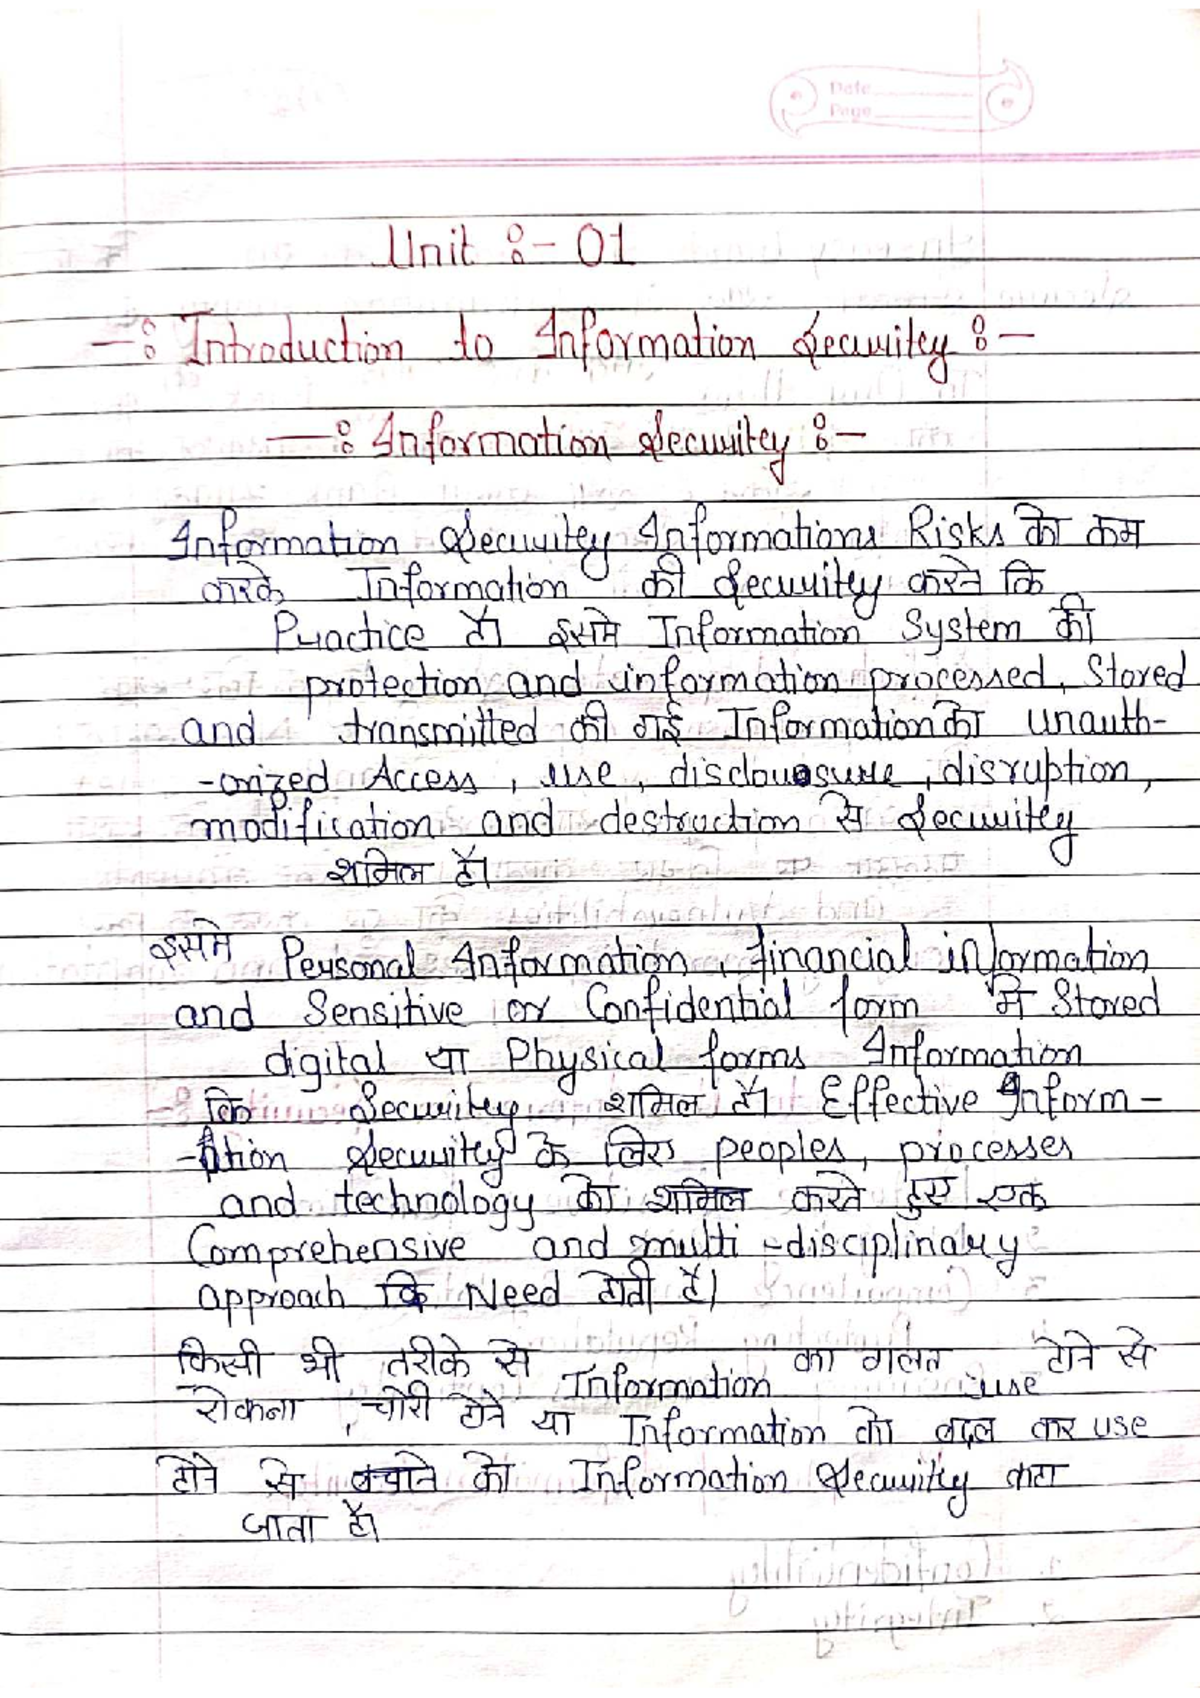 Date
Page
Unit :- 01
-: Introduction to Information Security :-
-: Information Security :-
Information Security Informations Risks को कम
करके Information की Security करने कि
Practice है। इसमे Information System की
protection and information processed, Stored
and transmitted की गई Information को unauth-
-orized Access, use, disclouosure, disruption,
modification and destruction से Security
शामिल है।
इसमे Personal Information, financial information
and Sensitive or Confidential form मे Stored
digital या Physical forms Information
कि Security शामिल है। Effective Inform-
-ation Security के लिए peoples, processes
and technology को शामिल करते हुए एक
Comprehensive and multi-disciplinary
approach कि Need होती है।
किसी भी तरीके से Information का गलत use होने से
रोकना, चोरी होने या Information को बदल कर use
होने से बचाने को Information Security कहा
जाता है।